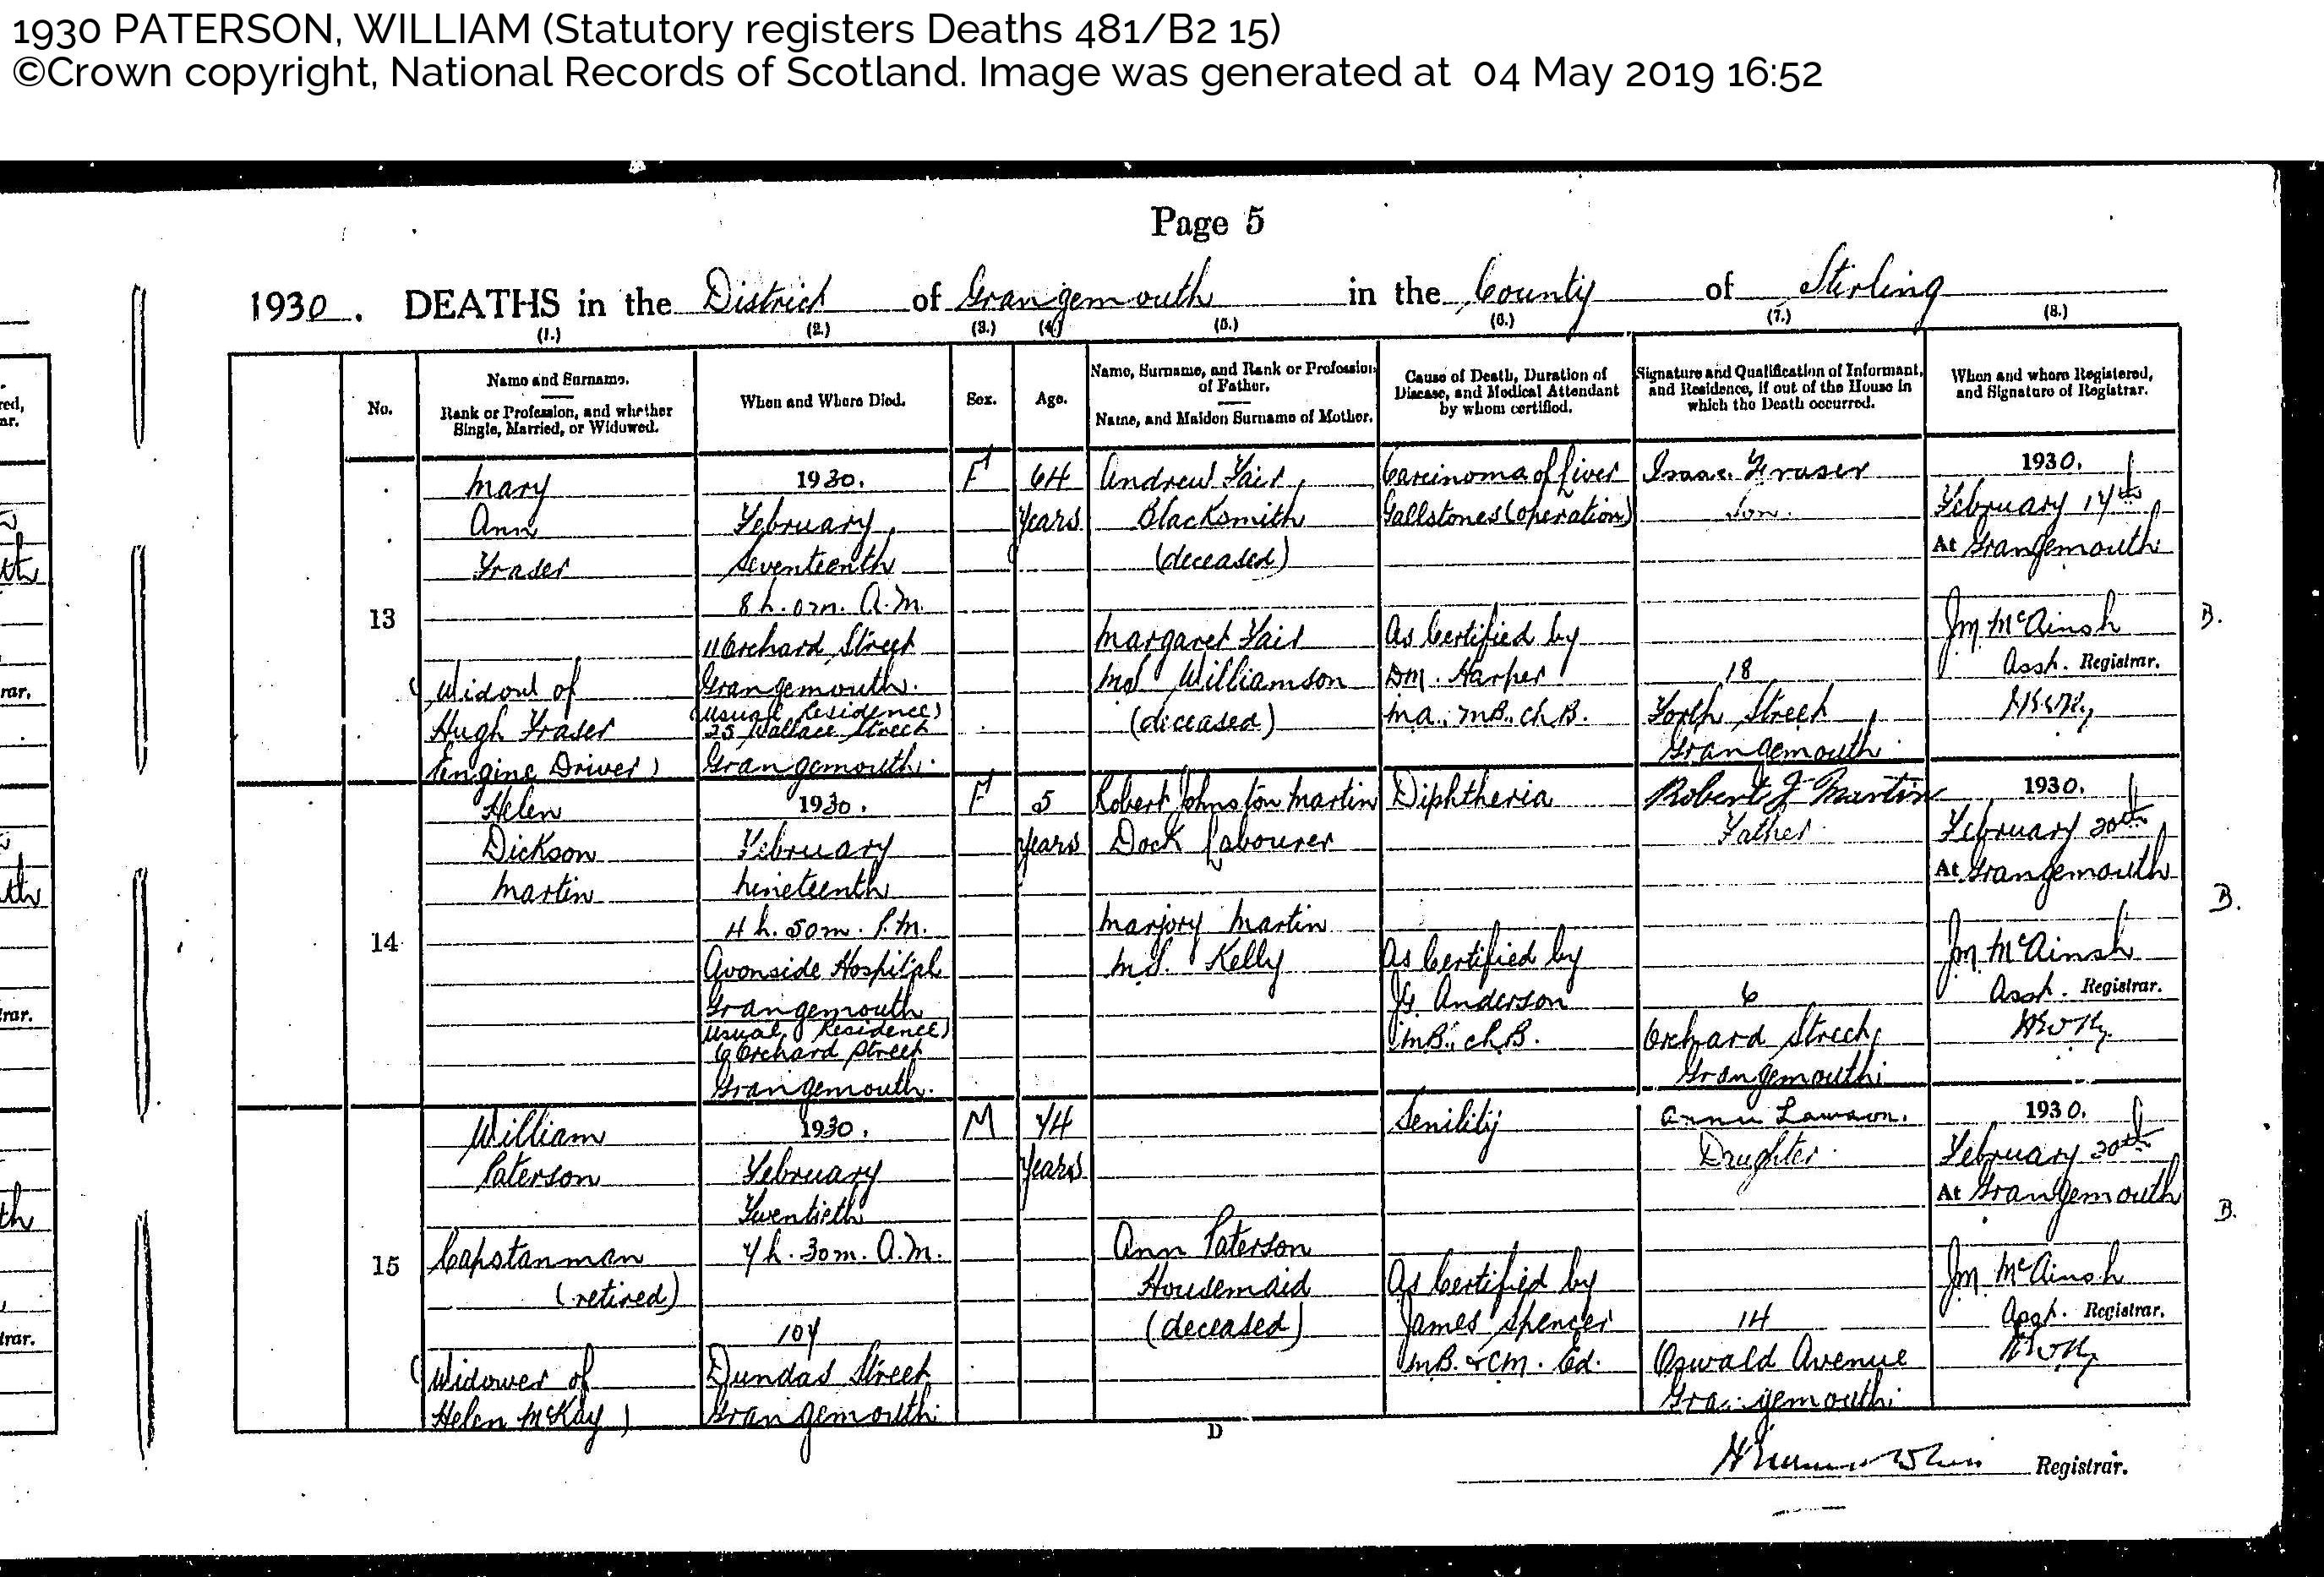 1930 PATERSON, WILLIAM (Statutory registers Deaths 481/B2 15)
©Crown copyright, National Records of Scotland. Image was generated at 04 May 2019 16:52
Page 5
1930. DEATHS in the District of Grangemouth in the County of Stirling
(1.) (2.) (3.) (4.) (5.) (6.) (7.) (8.)
No.
Name and Surname.
Rank or Profession, and whether
Single, Married, or Widowed.
When and Where Died.
Sex.
Age.
Name, Surname, and Rank or Profession
of Father.
Name, and Maiden Surname of Mother.
Cause of Death, Duration of
Disease, and Medical Attendant
by whom certified.
Signature and Qualification of Informant,
and Residence, if out of the House in
which the Death occurred.
When and where Registered,
and Signature of Registrar.
13
Mary
Ann
Fraser
(Widow of
Hugh Fraser
Engine Driver)
1930.
February
Seventeenth
8 h. 0 m. A.M.
11 Orchard Street
Grangemouth.
(Usual Residence)
35 Wallace Street
Grangemouth.
F
64
Years
Andrew Fair
Blacksmith
(deceased)
Margaret Fair
M.S. Williamson
(deceased)
Carcinoma of Liver
Gallstones (operation)
As Certified by
D.M. Harper
M.A., M.B., Ch.B.
Isaac Fraser
Son.
18
Forth Street
Grangemouth.
1930.
February 17th
At Grangemouth
J.M. McAinsh
Asst. Registrar.
B.
14
Helen
Dickson
Martin
1930.
February
Nineteenth
4 h. 50 m. P.M.
Avonside Hospital
Grangemouth
(Usual Residence)
6 Orchard Street
Grangemouth.
F
5
Years
Robert Johnston Martin
Dock Labourer
Marjory Martin
M.S. Kelly
Diphtheria
As Certified by
Anderson
M.B., Ch.B.
Robert J Martin
Father
6
Orchard Street
Grangemouth.
1930.
February 20th
At Grangemouth
J.M. McAinsh
Asst. Registrar.
B.
15
William
Paterson
Capstanman
(retired)
(Widower of
Helen McKay)
1930.
February
Twentieth
7 h. 30 m. A.M.
107
Dundas Street
Grangemouth.
M
74
Years
Ann Paterson
Housemaid
(deceased)
Senility
As Certified by
James Spencer
M.B. & C.M. Ed.
Annie Lawson.
Daughter.
14
Oswald Avenue
Grangemouth.
1930.
February 20th
At Grangemouth
J.M. McAinsh
Asst. Registrar.
B.
D
Registrar.